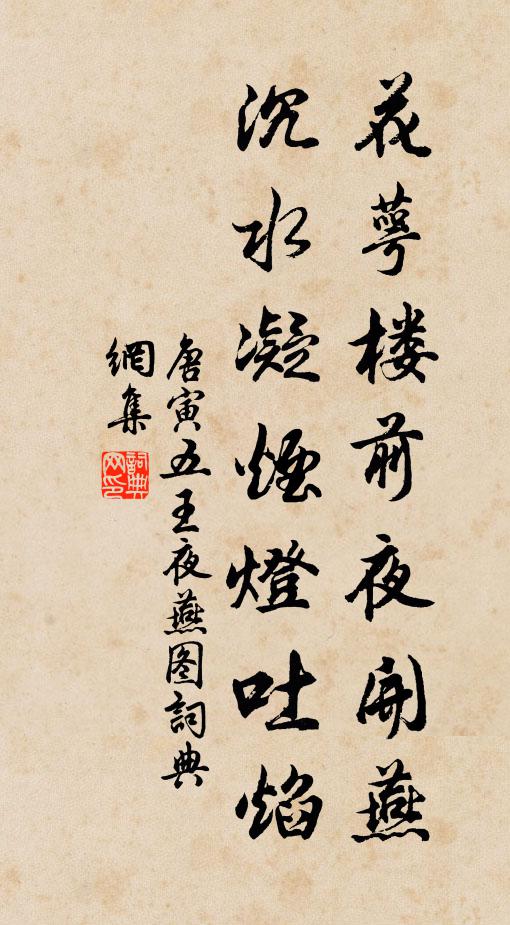 花萼楼前夜开燕
沉水凝煙燈吐焰
唐寅五王夜燕图詞典
網集
詞典网印